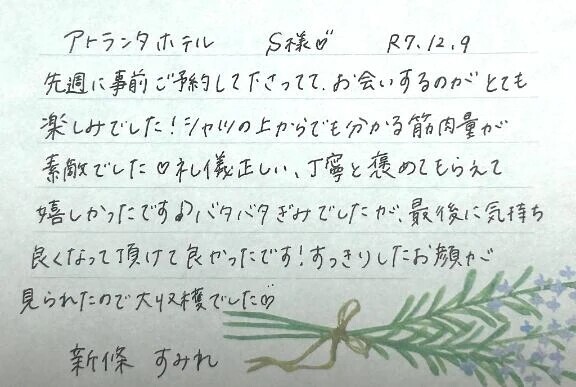 アトランタホテル S様♡ R7.12.9
先週に事前ご予約して下さってて、お会いするのがとても
楽しみでした!シャツの上からでも分かる筋肉量が
素敵でした♡礼儀正しい、丁寧と褒めてもらえて
嬉しかったです♪バタバタぎみでしたが、最後に気持ち
良くなって頂けて良かったです!すっきりしたお顔が
見られたので大収穫でした♡
新條 すみれ